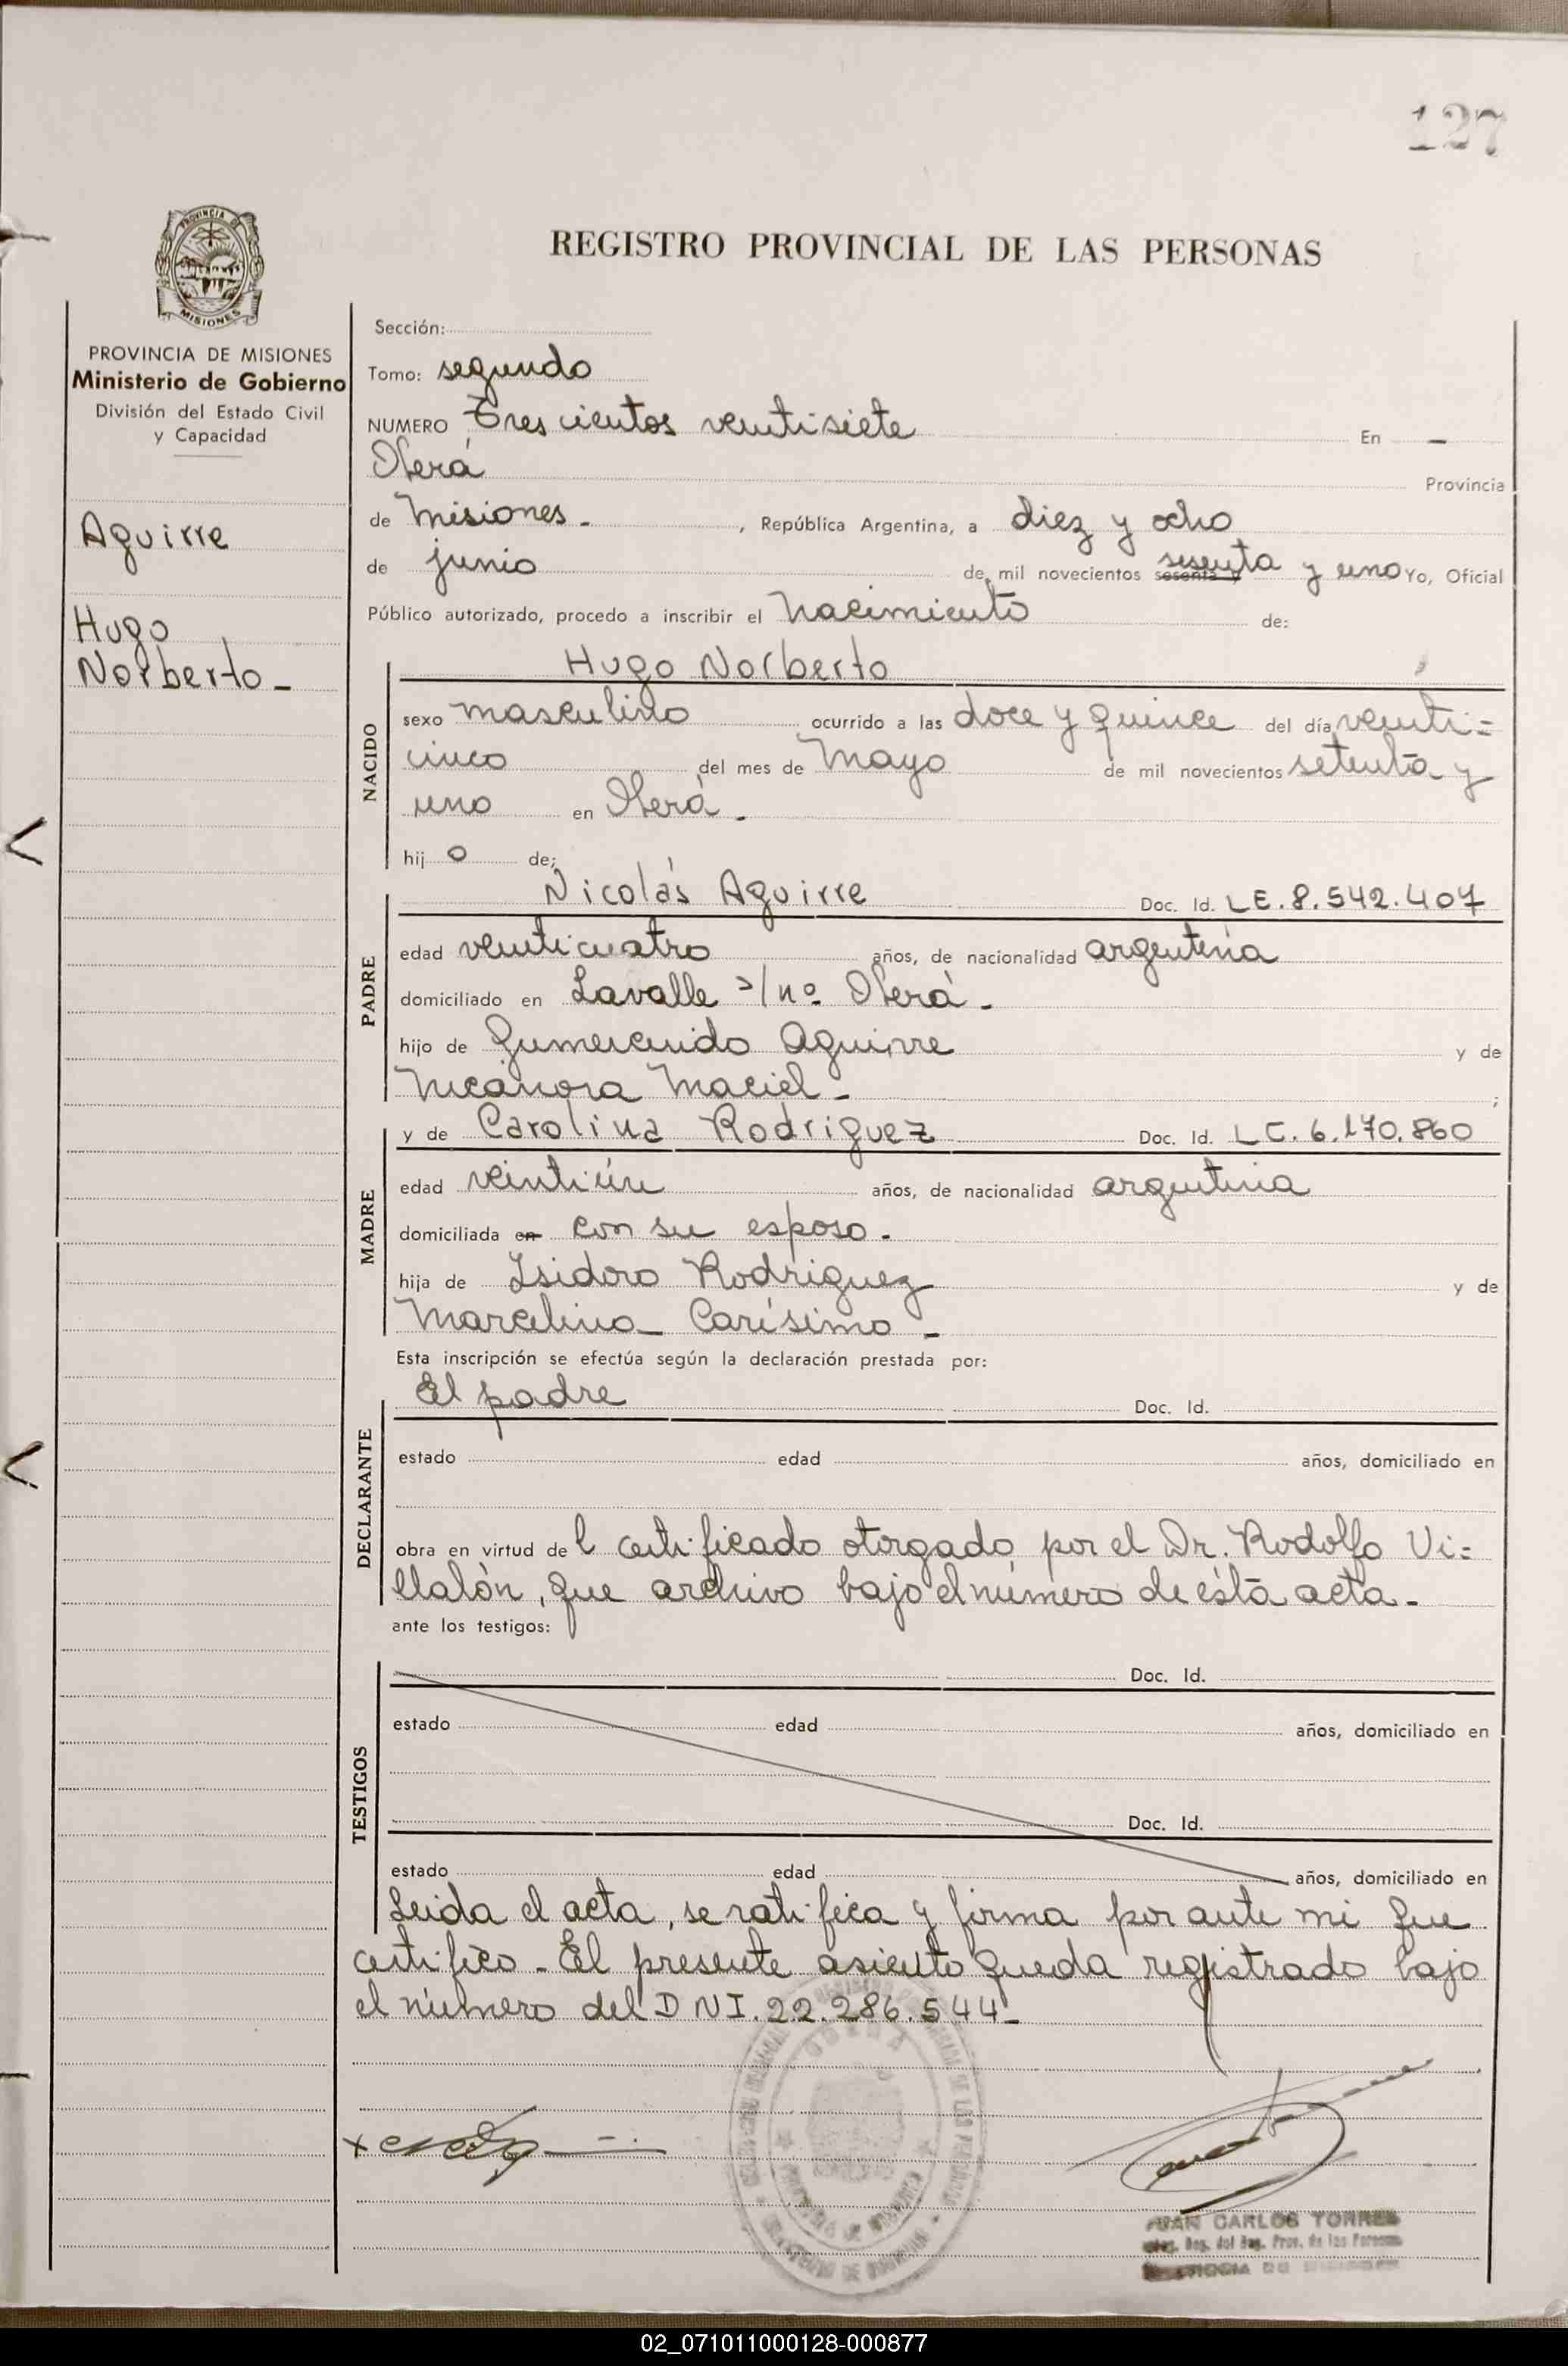 127
PROVINCIA DE
MISIONES
REGISTRO PROVINCIAL DE LAS PERSONAS
PROVINCIA DE MISIONES
Ministerio de Gobierno
División del Estado Civil
y Capacidad
Aguirre
Hugo
Norberto -
Sección:
Tomo: segundo
NUMERO Trescientos veintisiete En -
Oberá Provincia
de Misiones. , República Argentina, a diez y ocho
de junio de mil novecientos sesenta y setenta y uno Yo, Oficial
Público autorizado, procedo a inscribir el Nacimiento de:
NACIDO
Hugo Norberto
sexo masculino ocurrido a las doce y quince del día veinti=
cinco del mes de Mayo de mil novecientos setenta y
uno en Oberá.
hij o de;
PADRE
Nicolás Aguirre Doc. Id. LE. 8.542.407
edad veinticuatro años, de nacionalidad argentina
domiciliado en Lavalle s/nº Oberá -
hijo de Gumercindo Aguirre y de
Nicanora Maciel - ;
MADRE
y de Carolina Rodriguez Doc. Id. LC. 6.170.860
edad veintiún años, de nacionalidad argentina
domiciliada en con su esposo.
hija de Isidoro Rodriguez y de
Marcelina Carísimo -
Esta inscripción se efectúa según la declaración prestada por:
DECLARANTE
El padre Doc. Id.
estado edad años, domiciliado en
obra en virtud de l certificado otorgado por el Dr. Rodolfo Vi=
llalón, que archivo bajo el número de ésta acta.
ante los testigos:
TESTIGOS
Doc. Id.
estado edad años, domiciliado en
Doc. Id.
estado edad años, domiciliado en
Leida el acta, se ratifica y firma por ante mi que
certifico - El presente asiento queda registrado bajo
el número del DNI. 22.286.544 -
JUAN CARLOS TORRES
del Reg. Prov. de las Personas
02_071011000128-000877